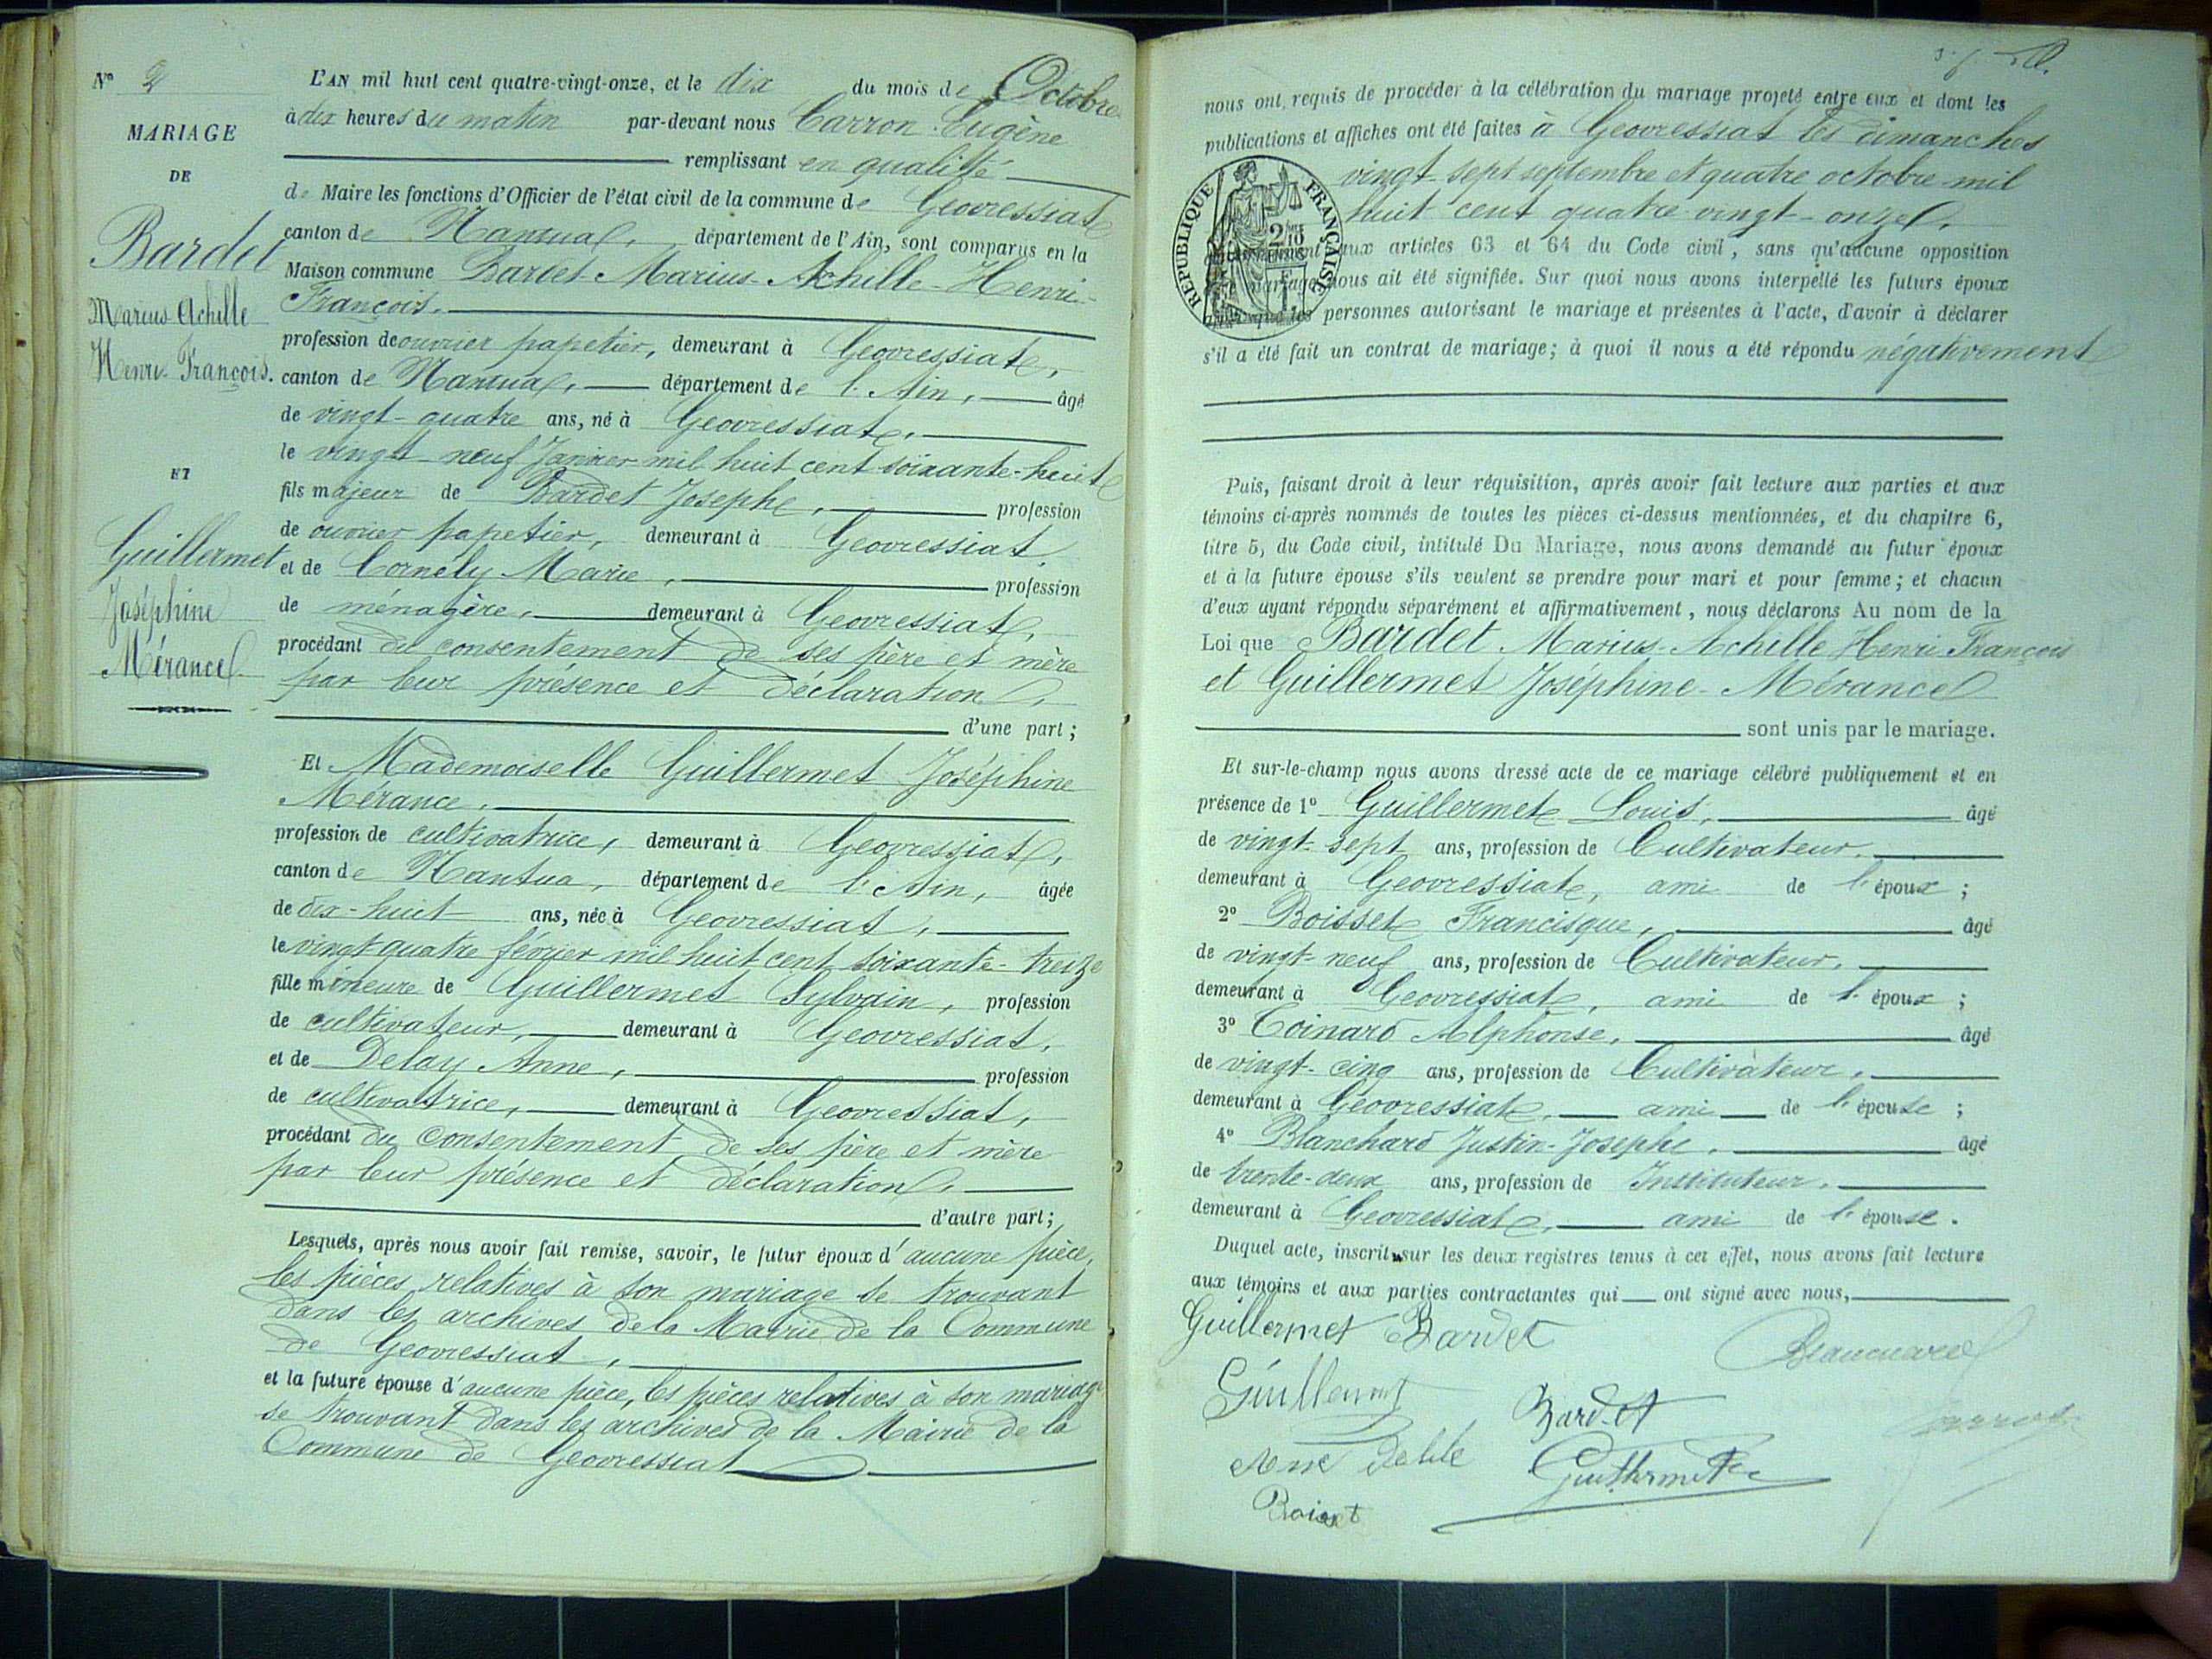 N° 2
MARIAGE
DE
Bardet
Marius Achille
Henri François.
ET
Guillermet
Joséphine
Mérance
L'AN mil huit cent quatre-vingt-onze, et le dix du mois de Octobre
à dix heures du matin par-devant nous Carron Eugène
remplissant en qualité
de Maire les fonctions d'Officier de l'état civil de la commune de Geovressiat
canton de Nantua, département de l'Ain, sont comparus en la
Maison commune Bardet Marius-Achille-Henri-
François.
profession de ouvrier papetier, demeurant à Geovressiat,
canton de Nantua, département de l'Ain, âgé
de vingt-quatre ans, né à Geovressiat,
le vingt-neuf Janvier mil huit cent soixante-huit
fils majeur de Bardet Josephe, profession
de ouvrier papetier, demeurant à Geovressiat
et de Cornely Marie, profession
de ménagère, demeurant à Geovressiat,
procédant du consentement de ses père et mère
par leur présence et déclaration,
d'une part;
Et Mademoiselle Guillermet Joséphine
Mérance,
profession de cultivatrice, demeurant à Geovressiat,
canton de Nantua, département de l'Ain, âgée
de dix-huit ans, née à Geovressiat,
le vingt-quatre février mil huit cent soixante-treize
fille mineure de Guillermet Sylvain, profession
de cultivateur, demeurant à Geovressiat,
et de Delay Anne, profession
de cultivatrice, demeurant à Geovressiat,
procédant du consentement de ses père et mère
par leur présence et déclaration,
d'autre part;
Lesquels, après nous avoir fait remise, savoir, le futur époux d'aucune pièce,
les pièces relatives à son mariage se trouvant
dans les archives de la Mairie de la Commune
de Geovressiat,
et la future épouse d'aucune pièce, les pièces relatives à son mariage
se trouvant dans les archives de la Mairie de la
Commune de Geovressiat
nous ont requis de procéder à la célébration du mariage projeté entre eux et dont les
publications et affiches ont été faites à Geovressiat les dimanches
vingt-sept septembre et quatre octobre mil
huit cent quatre-vingt-onze,
RÉPUBLIQUE FRANÇAISE
aux articles 63 et 64 du Code civil, sans qu'aucune opposition
mariage nous ait été signifiée. Sur quoi nous avons interpellé les futurs époux
ainsi que les personnes autorisant le mariage et présentes à l'acte, d'avoir à déclarer
s'il a été fait un contrat de mariage; à quoi il nous a été répondu négativement
Puis, faisant droit à leur réquisition, après avoir fait lecture aux parties et aux
témoins ci-après nommés de toutes les pièces ci-dessus mentionnées, et du chapitre 6,
titre 5, du Code civil, intitulé Du Mariage, nous avons demandé au futur époux
et à la future épouse s'ils veulent se prendre pour mari et pour femme; et chacun
d'eux ayant répondu séparément et affirmativement, nous déclarons Au nom de la
Loi que Bardet Marius-Achille Henri François
et Guillermet Joséphine-Mérance
sont unis par le mariage.
Et sur-le-champ nous avons dressé acte de ce mariage célébré publiquement et en
présence de 1° Guillermet Louis, âgé
de vingt-sept ans, profession de Cultivateur,
demeurant à Geovressiat, ami de l'époux;
2° Boisset Francisque, âgé
de vingt-neuf ans, profession de Cultivateur,
demeurant à Geovressiat, ami de l'époux;
3° Coinard Alphonse, âgé
de vingt-cinq ans, profession de Cultivateur,
demeurant à Geovressiat, ami de l'épouse;
4° Blanchard Justin-Josephe, âgé
de trente-deux ans, profession de Instituteur,
demeurant à Geovressiat, ami de l'épouse.
Duquel acte, inscrit sur les deux registres tenus à cet effet, nous avons fait lecture
aux témoins et aux parties contractantes qui ont signé avec nous,
Guillermet Bardet
Guillermet Bardet
Guillermet
Boisset